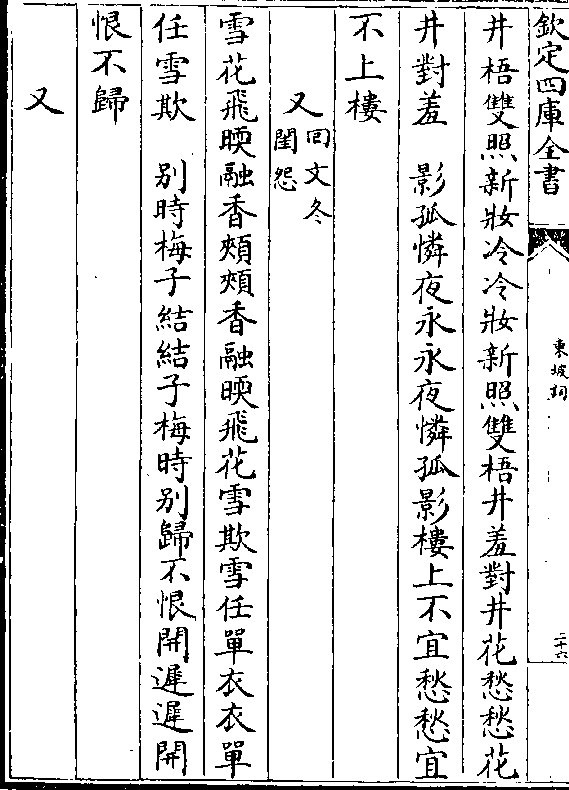 欽定四庫全書
東坡詞
二十六
井梧雙照新妝冷冷妝新照雙梧井羞對井花愁愁花
井對羞　影孤憐夜永永夜憐孤影樓上不宜愁愁宜
不上樓
又回文冬閨怨
雪花飛㬉融香頰頰香融㬉飛花雪欺雪任單衣衣單
任雪欺　別時梅子結結子梅時別歸不恨開遲遲開
恨不歸
又